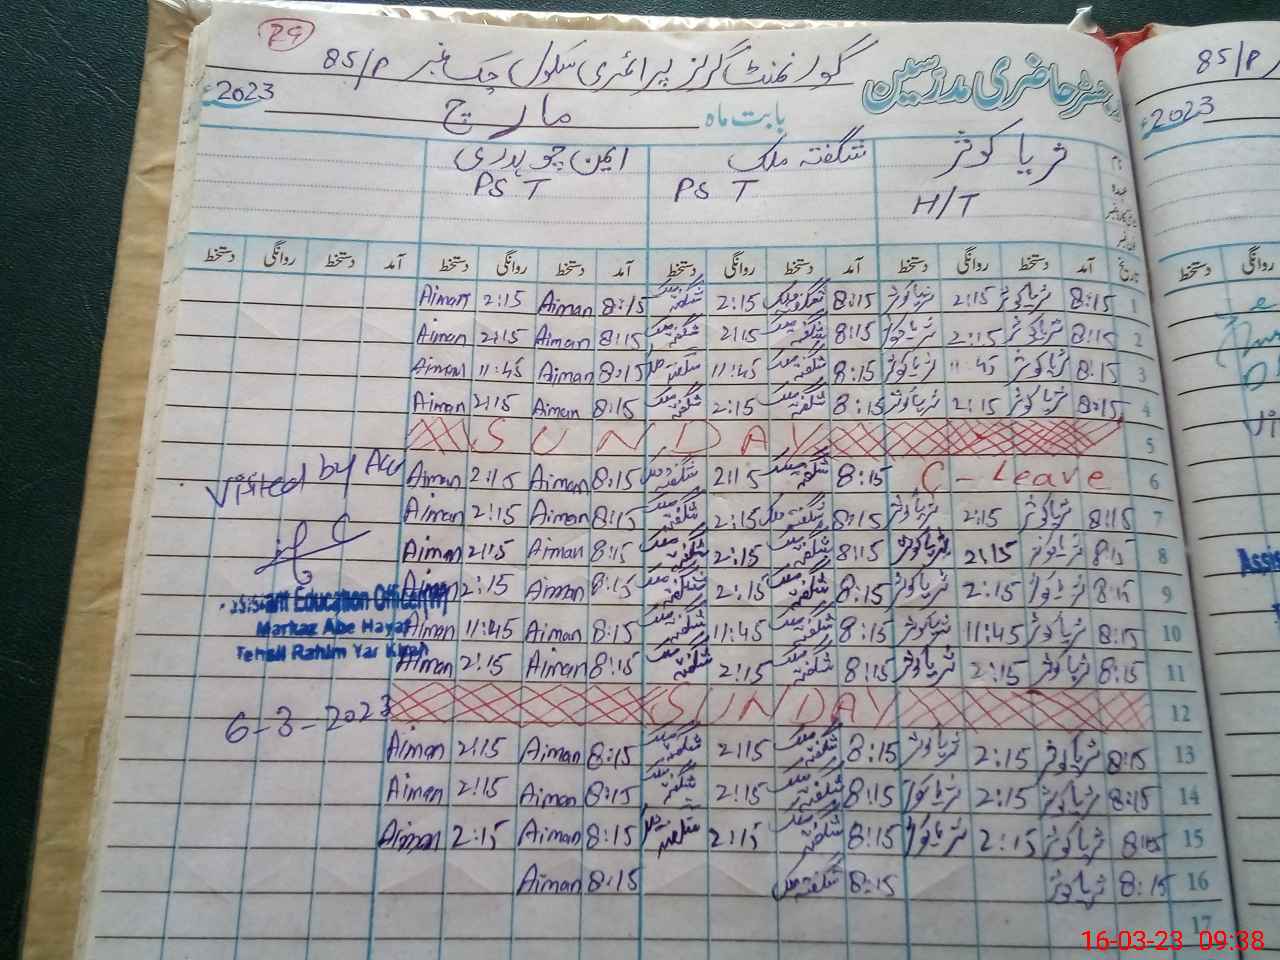 79
گورنمنٹ گرلز پرائمری سکول چک نمبر 85/P
رجسٹر حاضری مدرسین
بابت ماہ مارچ 2023
ثریا کوثر شگفتہ ملک ایمن چوہدری
H/T PST PST
تاریخ آمد دستخط روانگی دستخط آمد دستخط روانگی دستخط آمد دستخط روانگی دستخط آمد دستخط روانگی دستخط
1 8:15 ثریا کوثر 2:15 ثریا کوثر 8:15 شگفتہ ملک 2:15 شگفتہ ملک 8:15 Aiman 2:15 Aiman
2 8:15 ثریا کوثر 2:15 ثریا کوثر 8:15 شگفتہ ملک 2:15 شگفتہ ملک 8:15 Aiman 2:15 Aiman
3 8:15 ثریا کوثر 11:45 ثریا کوثر 8:15 شگفتہ ملک 11:45 شگفتہ ملک 8:15 Aiman 11:45 Aiman
4 8:15 ثریا کوثر 2:15 ثریا کوثر 8:15 شگفتہ ملک 2:15 شگفتہ ملک 8:15 Aiman 2:15 Aiman
5 SUNDAY
6 C-Leave 8:15 شگفتہ ملک 2:15 شگفتہ ملک 8:15 Aiman 2:15 Aiman
7 8:15 ثریا کوثر 2:15 ثریا کوثر 8:15 شگفتہ ملک 2:15 شگفتہ ملک 8:15 Aiman 2:15 Aiman
8 8:15 ثریا کوثر 2:15 ثریا کوثر 8:15 شگفتہ ملک 2:15 شگفتہ ملک 8:15 Aiman 2:15 Aiman
9 8:15 ثریا کوثر 2:15 ثریا کوثر 8:15 شگفتہ ملک 2:15 شگفتہ ملک 8:15 Aiman 2:15 Aiman
10 8:15 ثریا کوثر 11:45 ثریا کوثر 8:15 شگفتہ ملک 11:45 شگفتہ ملک 8:15 Aiman 11:45 Aiman
11 8:15 ثریا کوثر 2:15 ثریا کوثر 8:15 شگفتہ ملک 2:15 شگفتہ ملک 8:15 Aiman 2:15 Aiman
12 SUNDAY
13 8:15 ثریا کوثر 2:15 ثریا کوثر 8:15 شگفتہ ملک 2:15 شگفتہ ملک 8:15 Aiman 2:15 Aiman
14 8:15 ثریا کوثر 2:15 ثریا کوثر 8:15 شگفتہ ملک 2:15 شگفتہ ملک 8:15 Aiman 2:15 Aiman
15 8:15 ثریا کوثر 2:15 ثریا کوثر 8:15 شگفتہ ملک 2:15 شگفتہ ملک 8:15 Aiman 2:15 Aiman
16 8:15 ثریا کوثر 8:15 شگفتہ ملک 8:15 Aiman
17
Visited by
Assistant Education Officer(W)
Markaz Abe Hayat
Tehsil Rahim Yar Khan
6-3-2023
85/P
2023
روانگی دستخط
Assis
16-03-23 09:38